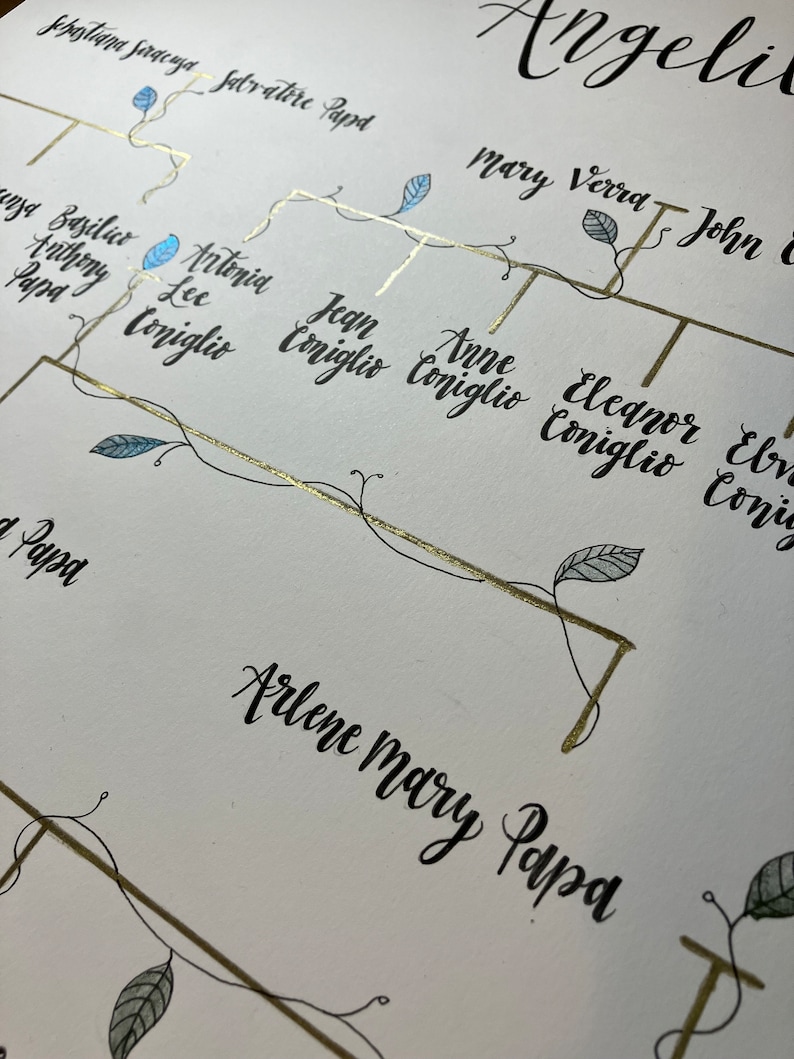 Angelil
Sebastiana Siracusa
Salvatore Papa
Mary Verra
John
Basilico
Anthony
Papa
Antonia
Lee
Coniglio
Jean
Coniglio
Anne
Coniglio
Eleanor
Coniglio
Papa
Arlene Mary Papa